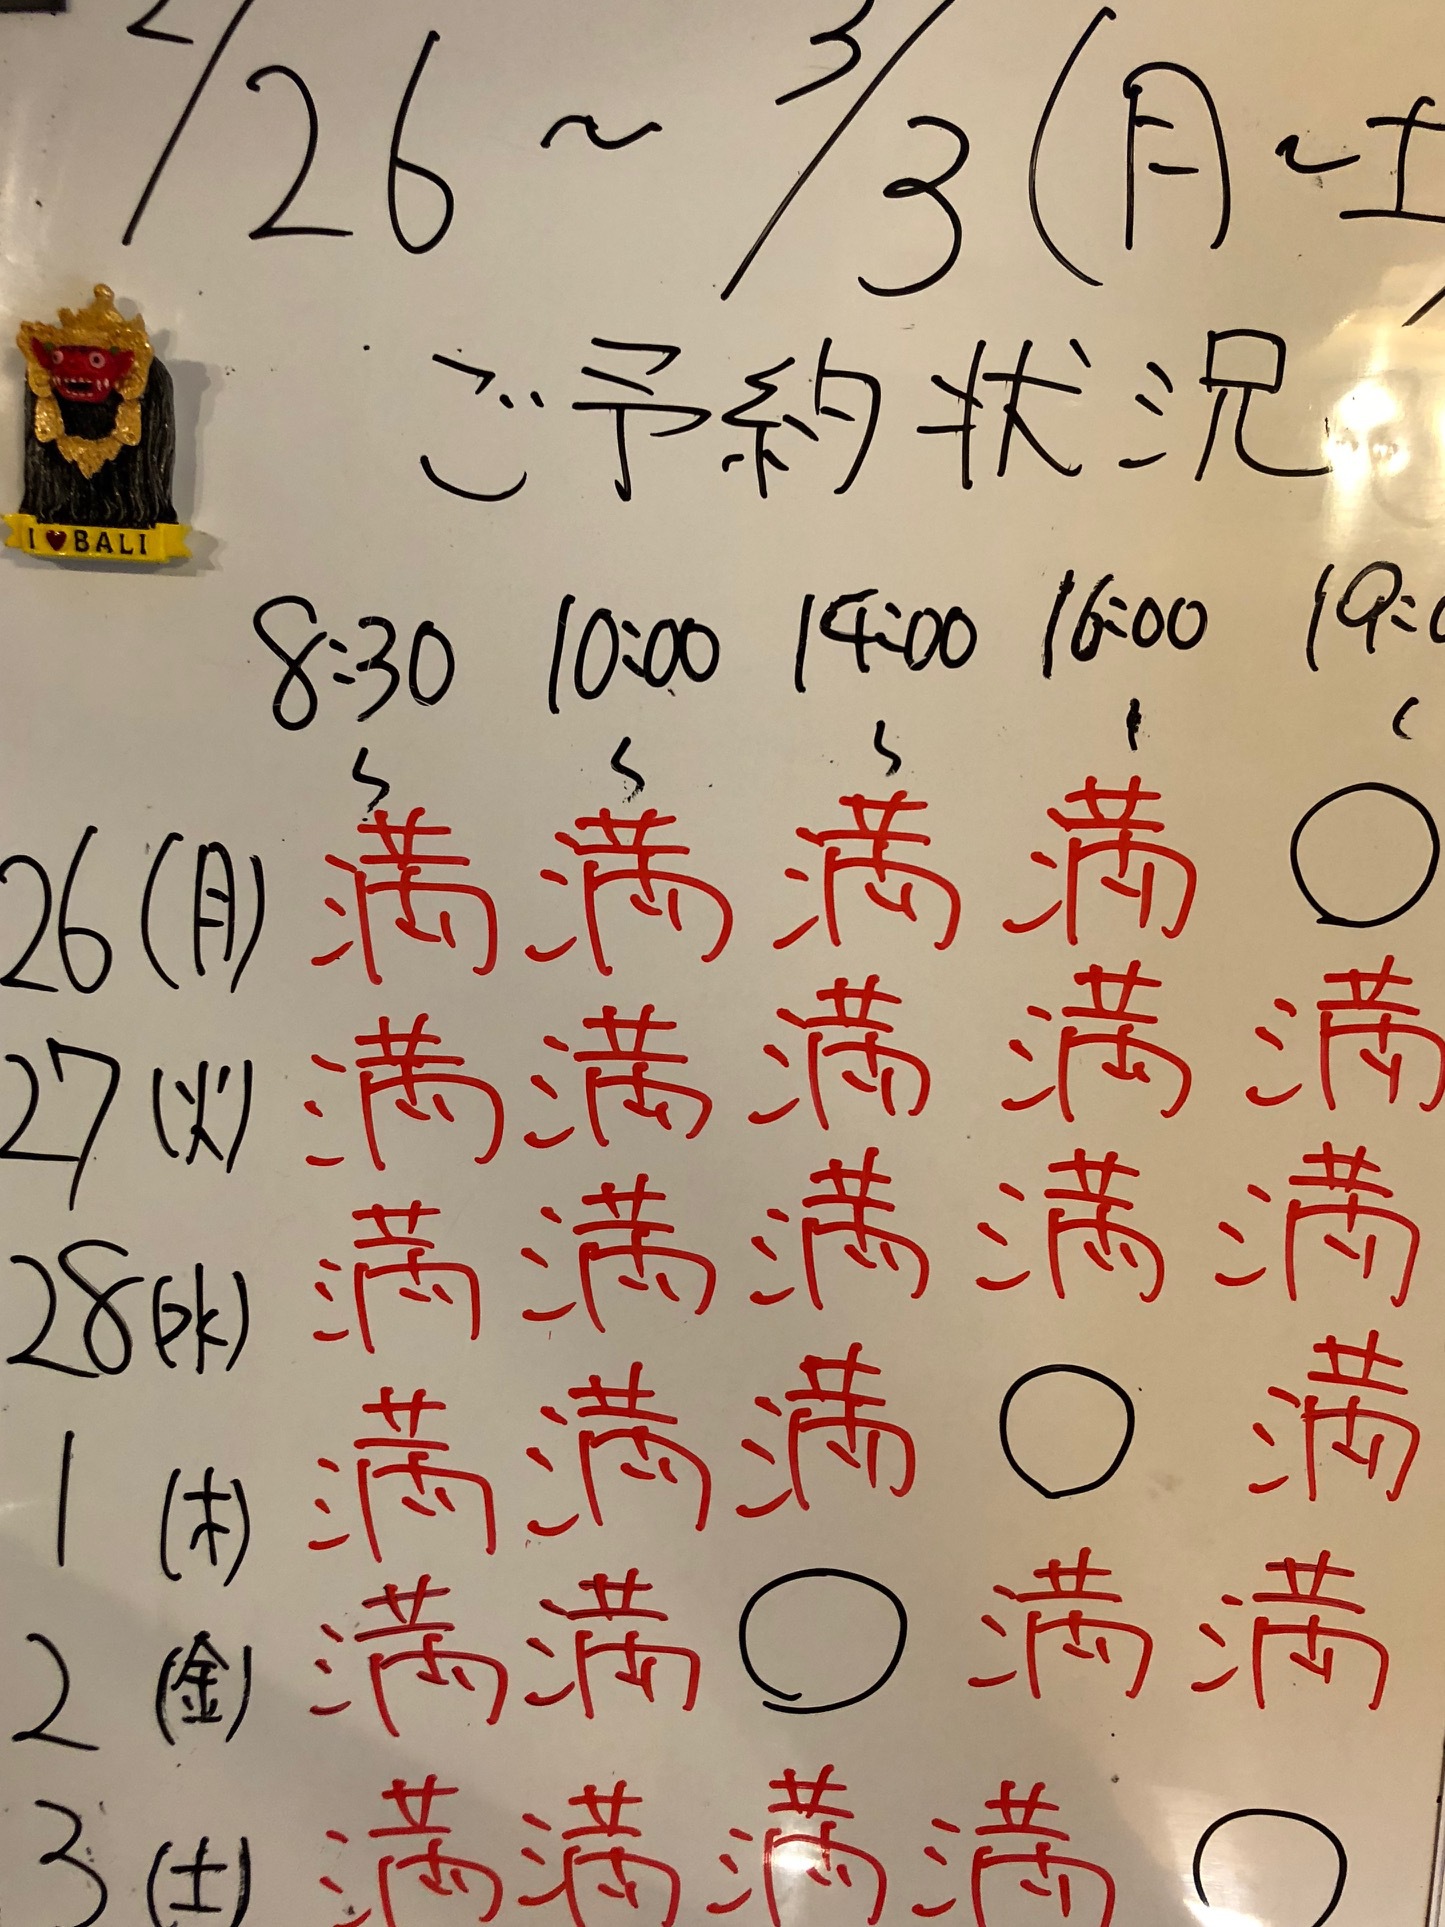 2/26 ~ 3/3 (月~土
ご予約状況
I ♥ BALI
8:30 10:00 14:00 16:00 19:0
26 (月) 満 満 満 満 ○
27 (火) 満 満 満 満 満
28 (水) 満 満 満 満 満
1 (木) 満 満 満 ○ 満
2 (金) 満 満 ○ 満 満
3 (土) 満 満 満 満 ○